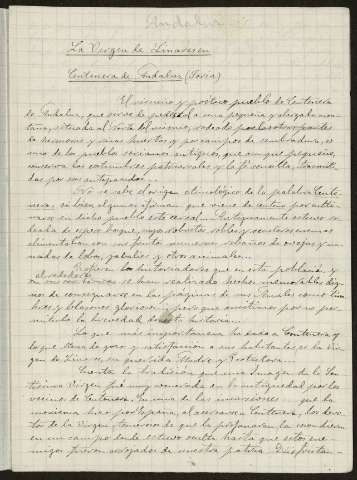 La Virgen de Linarejos
Centenera de Andaluz (Soria)
El vecino y poético pueblo de Centenera
de Andaluz, que sirve de pedestal a una pequeña y alargada mon-
taña, situada al Norte del mismo, rodeado por las otras partes
de hermosos y sanos huertos y por campos de sembradura, es
uno de los pueblos sorianos antiguos, que aunque pequeños,
conservan las costumbres patriarcales y la fe sencilla, trasmiti-
das por sus antepasados.
No se sabe el origen etimológico de la palabra Cente-
nera, si bien algunos afirman que viene de centeno por culti-
varse en dicho pueblo este cereal. Antiguamente estuvo ro-
deada de espeso bosque, cuyos robustos robles y
alimentaban con sus frutos numerosos rebaños de ovejas y ma-
nadas de lobos, jabalíes y otros animales.
Refieren los historiadores que en esta población y
alrededores se han realizado hechos memorables dig-
nos de consignarse en las páginas de sus Anales como tim-
bres y blasones gloriosos, y porque omitimos por no per-
mitirlo la brevedad de esta historia.
Lo que más importancia ha dado a Centenera y
lo que llena de gozo y satisfacción a sus habitantes es la Vir-
gen de Linarejos, su querida Madre y Protectora.
Cuenta la tradición que una Imagen de la San-
tísima Virgen fue muy venerada en la antigüedad por los
vecinos de Centenera. En una de las incursiones que la
morisma hizo por España, al acercarse a Centenera, los devo-
tos de la Virgen, temerosos de que la profanaran, la escondieron
en un campo donde estuvo oculta hasta que estos ene-
migos fueron arrojados de nuestra patria. Disfrutan-